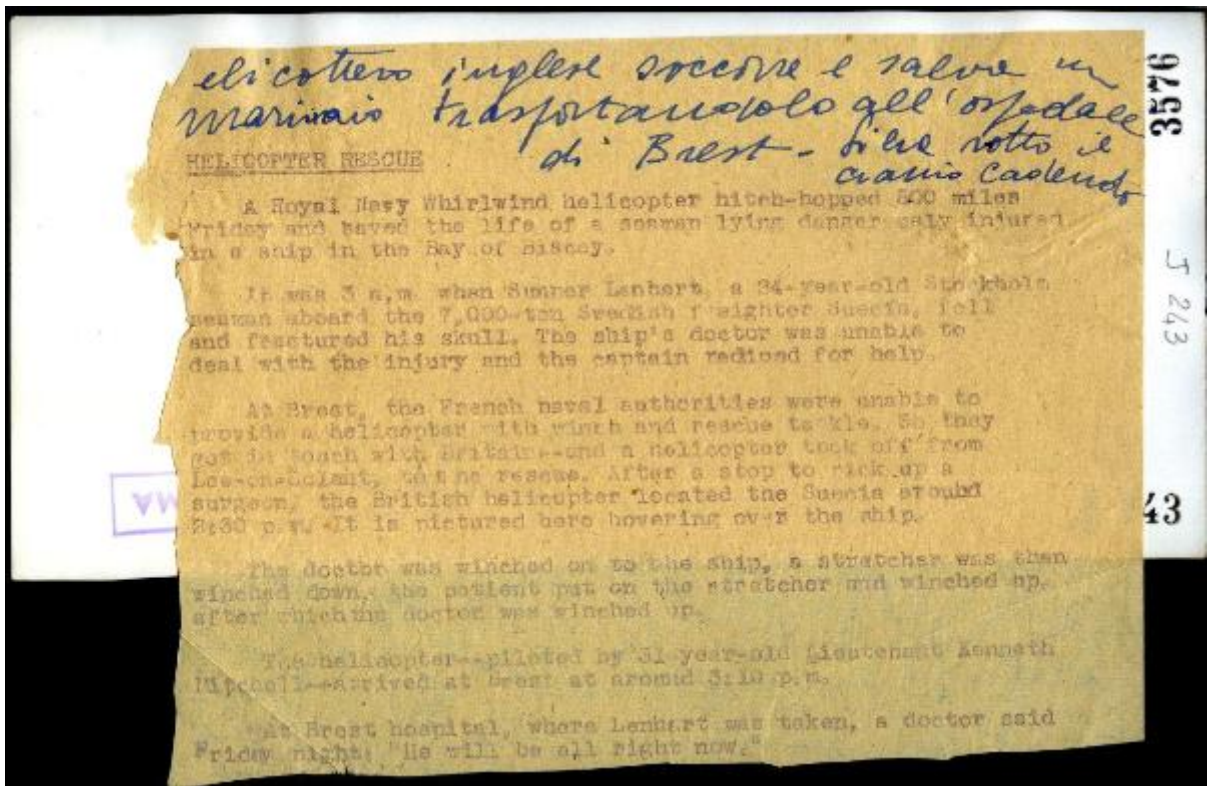 elicottero inglese soccorre e salva un
marinaio trasportandolo all'ospedale
di Brest - si era rotto il
cranio cadendo
HELICOPTER RESCUE
A Royal Navy Whirlwind helicopter hitch-hopped 500 miles
Friday and saved the life of a seaman lying dangerously injured
in a ship in the Bay of Biscay.
It was 3 a.m. when Sumner Lenhart, a 34-year-old Stockholm
seaman aboard the 7,000-ton Swedish freighter Suecia, fell
and fractured his skull. The ship's doctor was unable to
deal with the injury and the captain radioed for help.
At Brest, the French naval authorities were unable to
provide a helicopter with winch and rescue tackle. So they
got in touch with Britain--and a helicopter took off from
Lee-on-Solent, to the rescue. After a stop to pick up a
surgeon, the British helicopter located the Suecia around
2:30 p.m. It is pictured here hovering over the ship.
The doctor was winched on to the ship, a stratcher was then
winched down, the patient put on the stratcher and winched up,
after which the doctor was winched up.
The helicopter--piloted by 31-year-old Lieutenant Kenneth
Mitchell--arrived at Brest at around 3:10 p.m.
At Brest hospital, where Lenhart was taken, a doctor said
Friday night: "He will be all right now."
3576
J 243
43